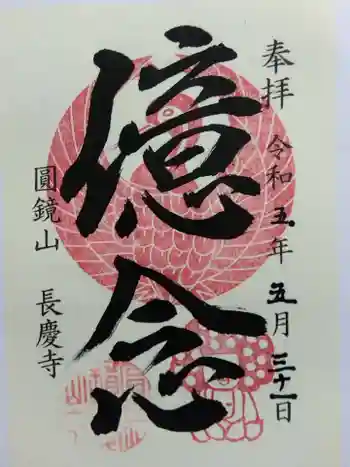 奉拝 令和五年五月三十一日
億念
圓鏡山 長慶寺